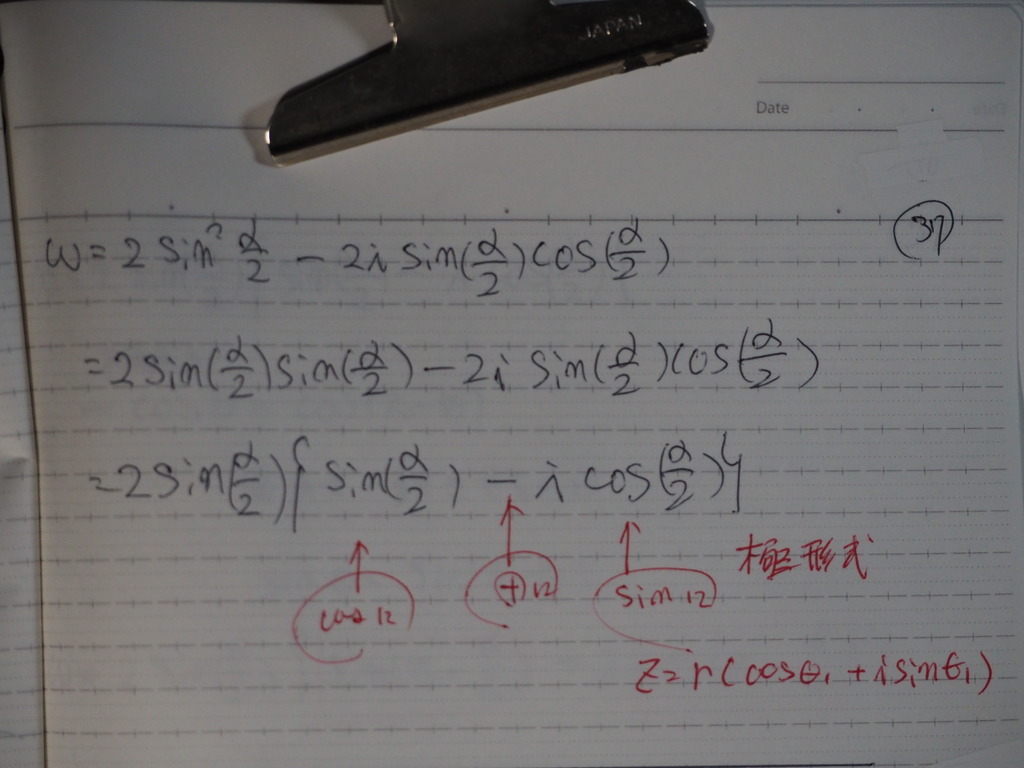 JAPAN
Date
37
ω = 2 sin² α/2 - 2i sin(α/2) cos(α/2)
= 2 sin(α/2) sin(α/2) - 2i sin(α/2) cos(α/2)
= 2 sin(α/2) { sin(α/2) - i cos(α/2) }
cosに ⊕に sinに
極形式
z = r(cosθ₁ + i sinθ₁)